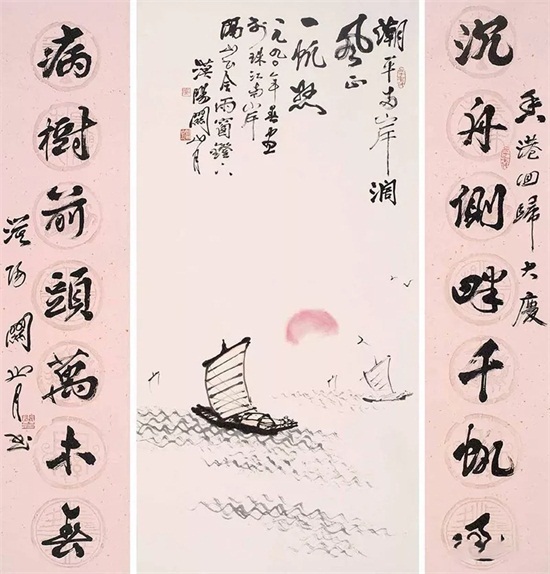 沉舟側畔千帆過
香港回歸大慶
潮平兩岸濶
風正
一帆懸
一九九〇年春畫
於珠江南岸
隔山雨窗燈下
漠陽關山月
病樹前頭萬木春
漠陽關山月